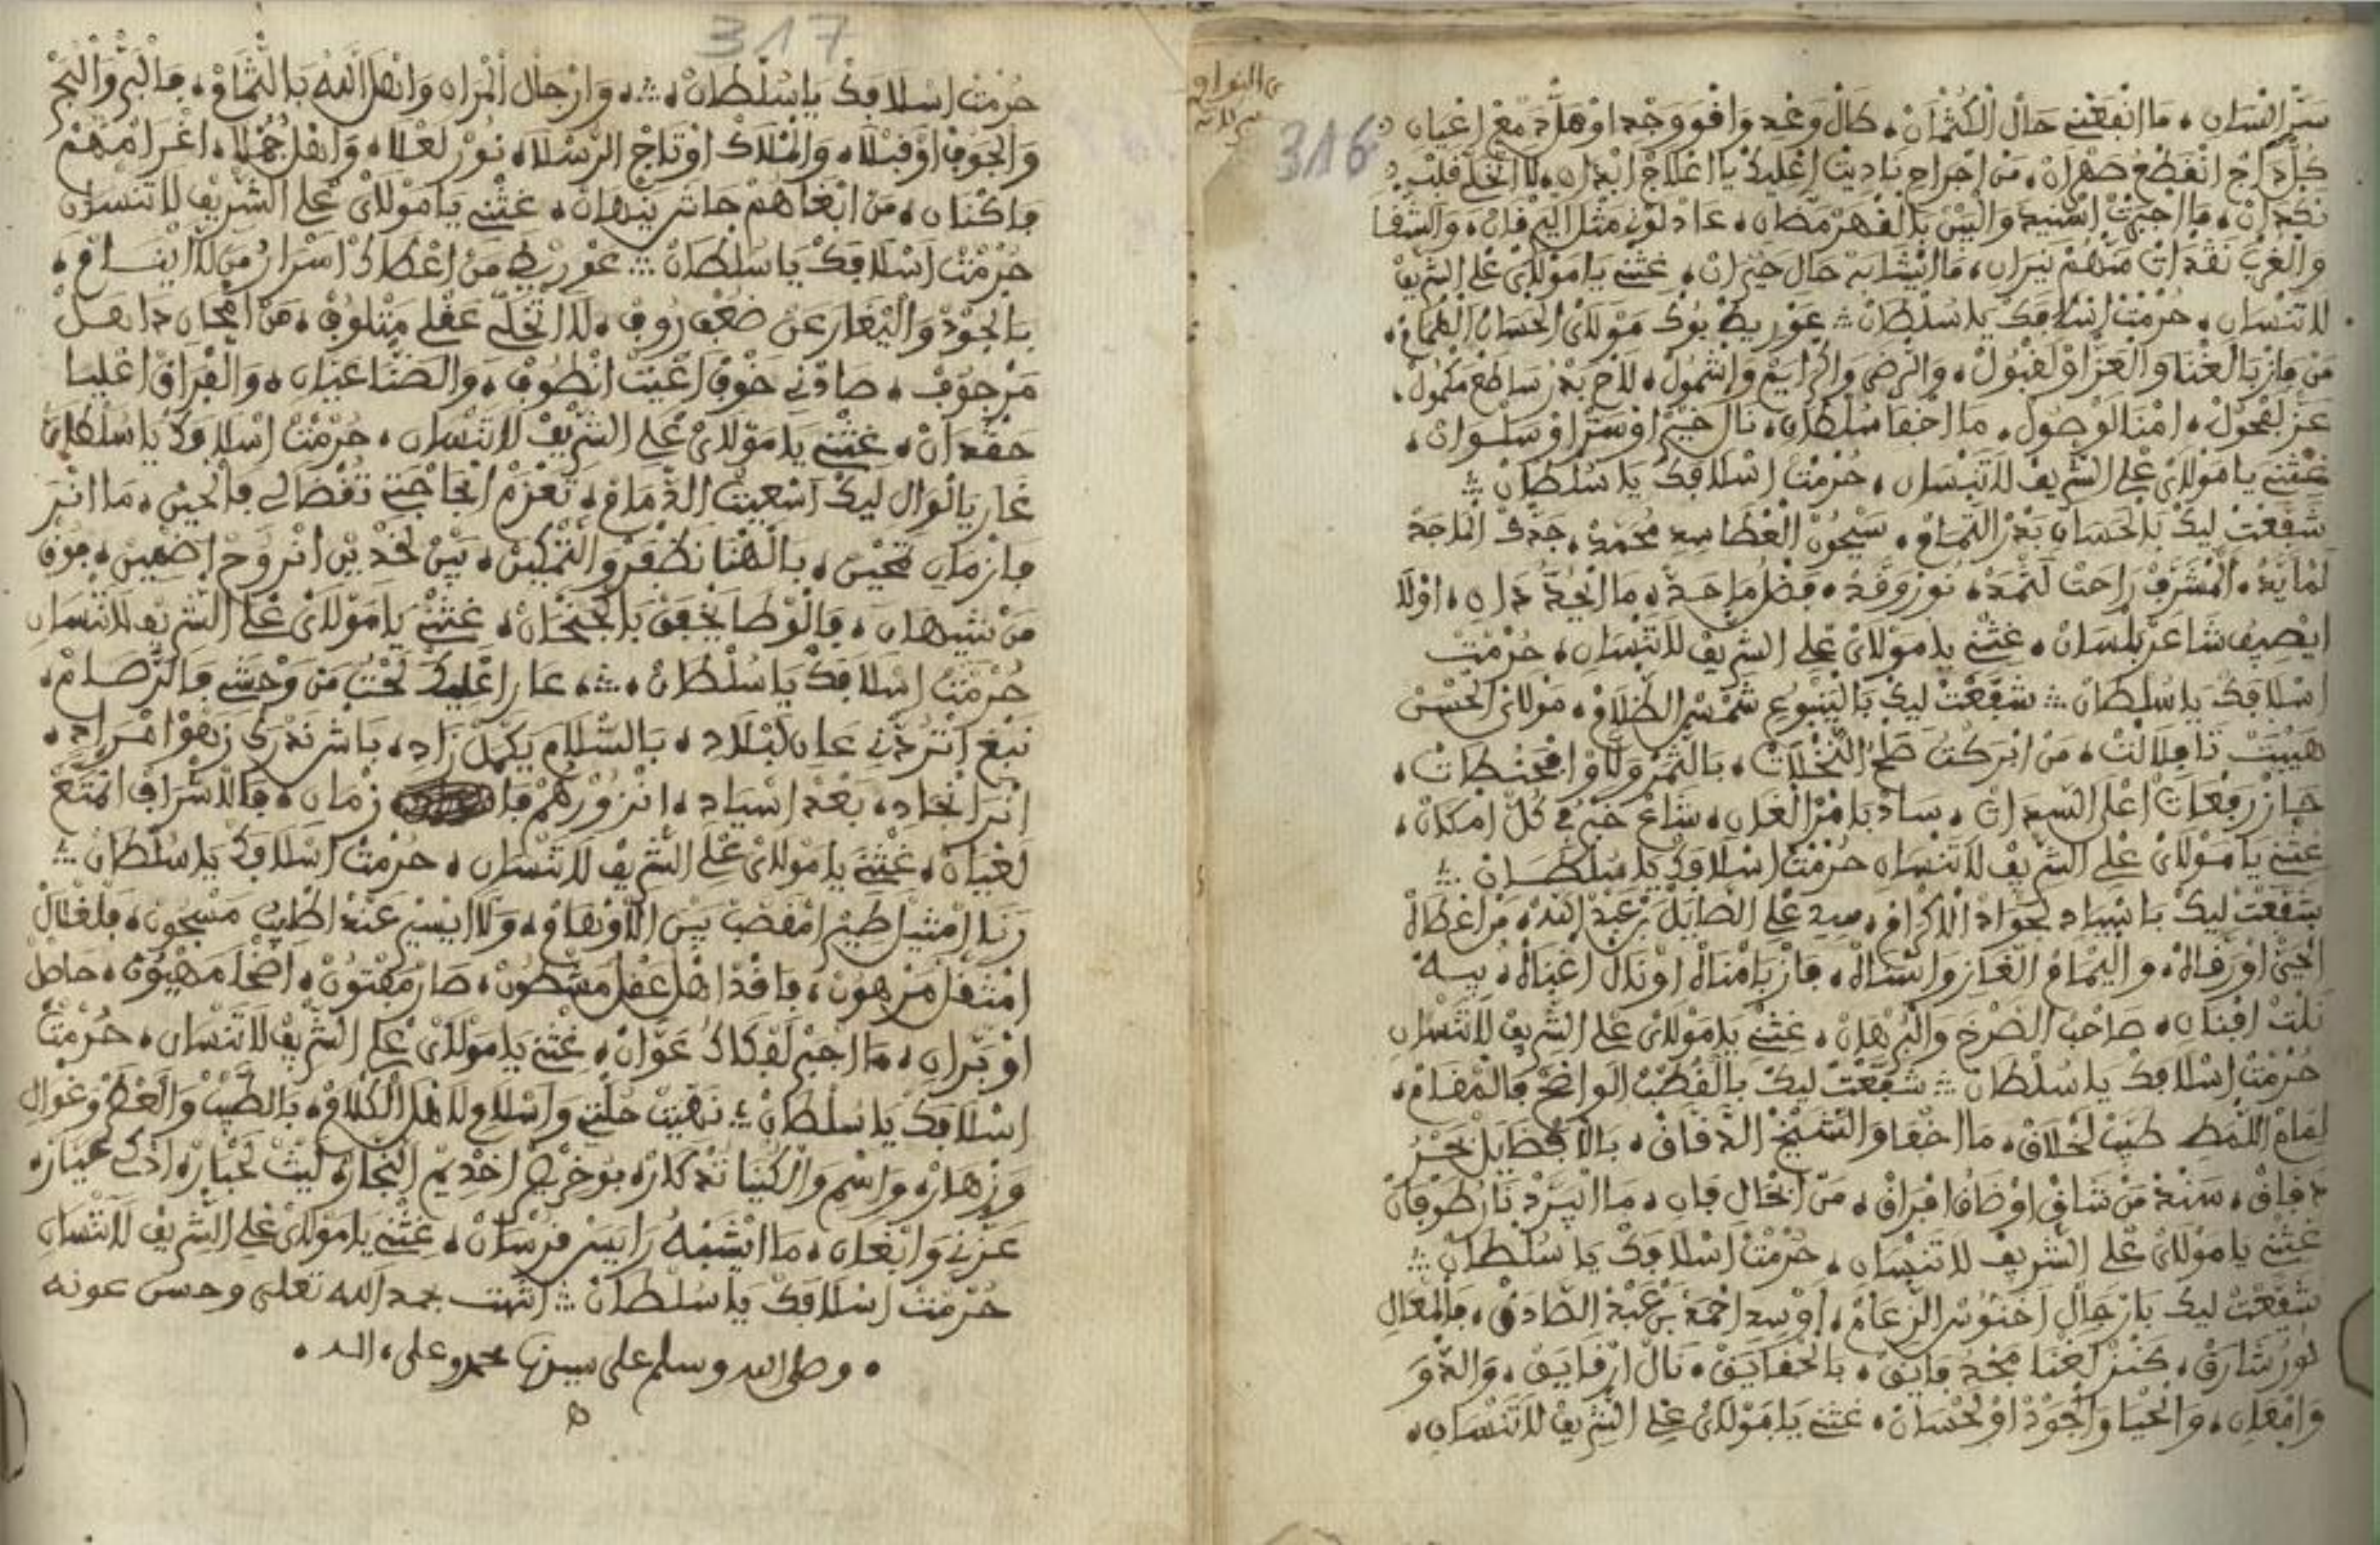 316
سر النسان، ما انفعني حال الكثمان، طال وعد وافو وجد اوهل دمع اعيان
كل دراج انقطع صهران، من اجراح ناديت اعليك يا اعلاج ابدان، لا اتخل قلب
نكدان، ما اجبت اهنيد والبين بالقهر مضان، عاد لون مثل اليرقان، والشفا
والغرب نقدات منهم نيران، ما ايتشابه حال حيران، غثني يا مولاي علي الشريف
لا تنسان، حرمت اسلافك يا سلطان ؞ عوريط بوك مولاي الحسان الهمام،
من فاز بالغنا والعز اولقبول، والرضى والكرايم واشمول، لاح بدر ساطع مكمول،
عز لفحول، امنا لوصول، ما اخفا سلطان، نال خير اوستر اوسلوان،
غثني يا مولاي علي الشريف لا تنسان، حرمت اسلافك يا سلطان ؞
شفعت ليك بالحسان بدر التمام، سيحون العطا سيد محمد، جدك الماجد
لمايد، المشرف راحت لثمد، نور وقد، فضل ما حد، ما ايحد دان، اولا
ايصيف شاعر بلسان، غثني يا مولاي علي الشريف لا تنسان، حرمت
اسلافك يا سلطان ؞ شفعت ليك بالينبوع شمس الظلام، مولاي الحسن
هيبت تافيلالت، من ابركت طح النخلات، بالثمر ولاو امحنطات،
حاز رفعات اعلى السدات، ساد بامر الغان، شاع خبر في كل امكان،
غثني يا مولاي علي الشريف لا تنسان حرمت اسلافك يا سلطان ؞
شفعت ليك باسياد لجواد الاكرام، سيد علي الصايل بن عبد الله، من اعطاه
الحي اورقاه، واليمام الغاز وانساله، فاز بامناه اونال اغناه، بيه
نلت افنان، صاحب الصرخ والبرهان، غثني يا مولاي علي الشريف لا تنسان
حرمت اسلافك يا سلطان ؞ شفعت ليك بالقطب الواضح فالمقام،
لمام اللمطي طيب لخلاق، ما اخفاو الشيخ الدقاق، بالافضايل بحر
دفاق، سند من شاق اوضاق افراق، من انحال فان، ما ايبرد نار طوفان
غثني يا مولاي علي الشريف لا تنسان، حرمت اسلافك يا سلطان ؞
شفعت ليك بارجال اخنوس الزعام، اوسيد احمد بن عبد الصادق، فالمعال
نور شارق، كنز لغنا مجد فايق، بالحقايق، نال ارقايق، والدو
وامعان، والحيا والجود اولحسان، غثني يا مولاي علي الشريف لا تنسان،
317
حرمت اسلافك يا سلطان، ؞، وارجال المراه وانهل الله بالثمام، فالبر والبحر
والجوف اوقبلا، والملاك اوتاج الرسلا، نور لعلا، واهل جملا، اغرامهم
فاكنان، من ابغاهم حاشا ينهان، غثني يا مولاي علي الشريف لا تنسان
حرمت اسلافك يا سلطان ؞ عوريط من اعطاك اسرار من لا اينام،
بالجود والا يغار عن ضعف روف، لا اتخل عقلي متلوف، من امحان داهل
مرجوف، صادني خوف اعييت انطوف، والضنا عيان، والفراق اعليا
حقدان، غثني يا مولاي علي الشريف لا تنسان، حرمت اسلافك يا سلطان
غار يالوال ليك اسعيت الدمام، تعزم انجاحتي تقضالي فالحين، ما انر
فازمان تحين، بالهنا نظفر والتمكين، بين لخدين انروح اضمين، موف
من شيهان، فالوطا يخفق بالجنحان، غثني يا مولاي علي الشريف لا تنسان
حرمت اسلافك يا سلطان، ؞، عار اعليك لحت من وحشي فالترصام،
نبغ اتردني عان لبلاد، بالسلام يكمل زاد، باش ندرك زهو امراد،
انر انجاد، بعد اسياد، انزورهم فا زمان، فالاشراف انمتع
لعيان، غثني يا مولاي علي الشريف لا تنسان، حرمت اسلافك يا سلطان ؞
رنا امثيل طير امقصب بين الاوهام، ولا ايسير عند اطيب مسجون، فلغلال
امثقل مرهون، فاقد اهل عقل مشطون، صار مفتون، اضحا مهيون، حاصل
اوبران، ما اجبر لفكاك عوان، غثني يا مولاي علي الشريف لا تنسان، حرمت
اسلافك يا سلطان ؞ نهيت حلتي واسلام لاهل الكلام، بالطيب والعطر وغوال
وزهاره واسم والكنيا تدكار، بوخريص اخديم النجار، ليث لحبار، ادكى عيار
عزني وابغان، ما ايشبه رايس فرسان، غثني يا مولاي علي الشريف لا تنسان
حرمت اسلافك يا سلطان ؞ انتهت بحمد الله تعلى وحسن عونه
، وصلى الله وسلم على سيدنا محمد وعلى ءاله ،